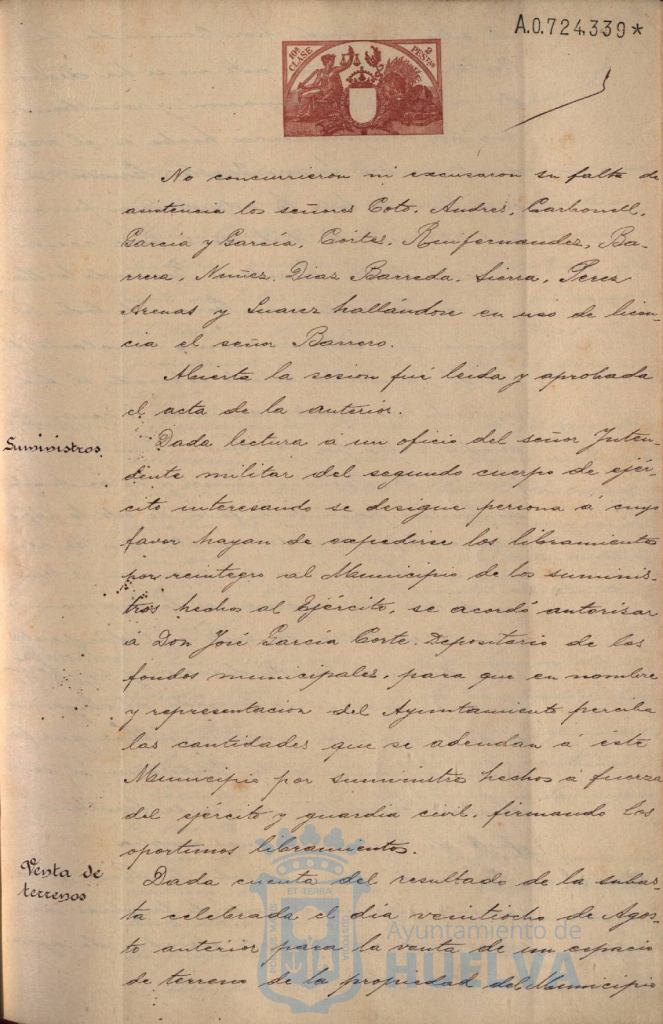 A.0.724.339*
10ª CLASE
2 PESTAS
No concurrieron ni excusaron su falta de
asistencia los señores Coto, Andres, Carbonell,
García y García, Cortes, Renfernandez, Ba-
rrera, Nuñez, Diaz Barreda, Sierra, Perez
Arenas y Suarez hallándose en uso de licen-
cia el señor Barrero.
Abierta la sesion fué leida y aprobada
el acta de la anterior.
Suministros
Dada lectura á un oficio del señor Inten-
dente militar del segundo cuerpo de ejér-
cito interesando se designe persona á cuyo
favor hayan de expedirse los libramientos
por reintegro al Municipio de los suminis-
tros hechos al Ejército, se acordó autorisar
á Don José García Corte. Depositario de los
fondos municipales, para que en nombre
y representacion del Ayuntamiento perciba
las cantidades que se adeudan á éste
Municipio por suministros hechos á fuerza
del ejército y guardia civil, firmando los
oportunos libramientos.
Venta de
terrenos
Dada cuenta del resultado de la subas-
ta celebrada el día veintiocho de Agos-
to anterior para la venta de un espacio
de terreno de la propiedad del Municipio
Ayuntamiento de
HUELVA